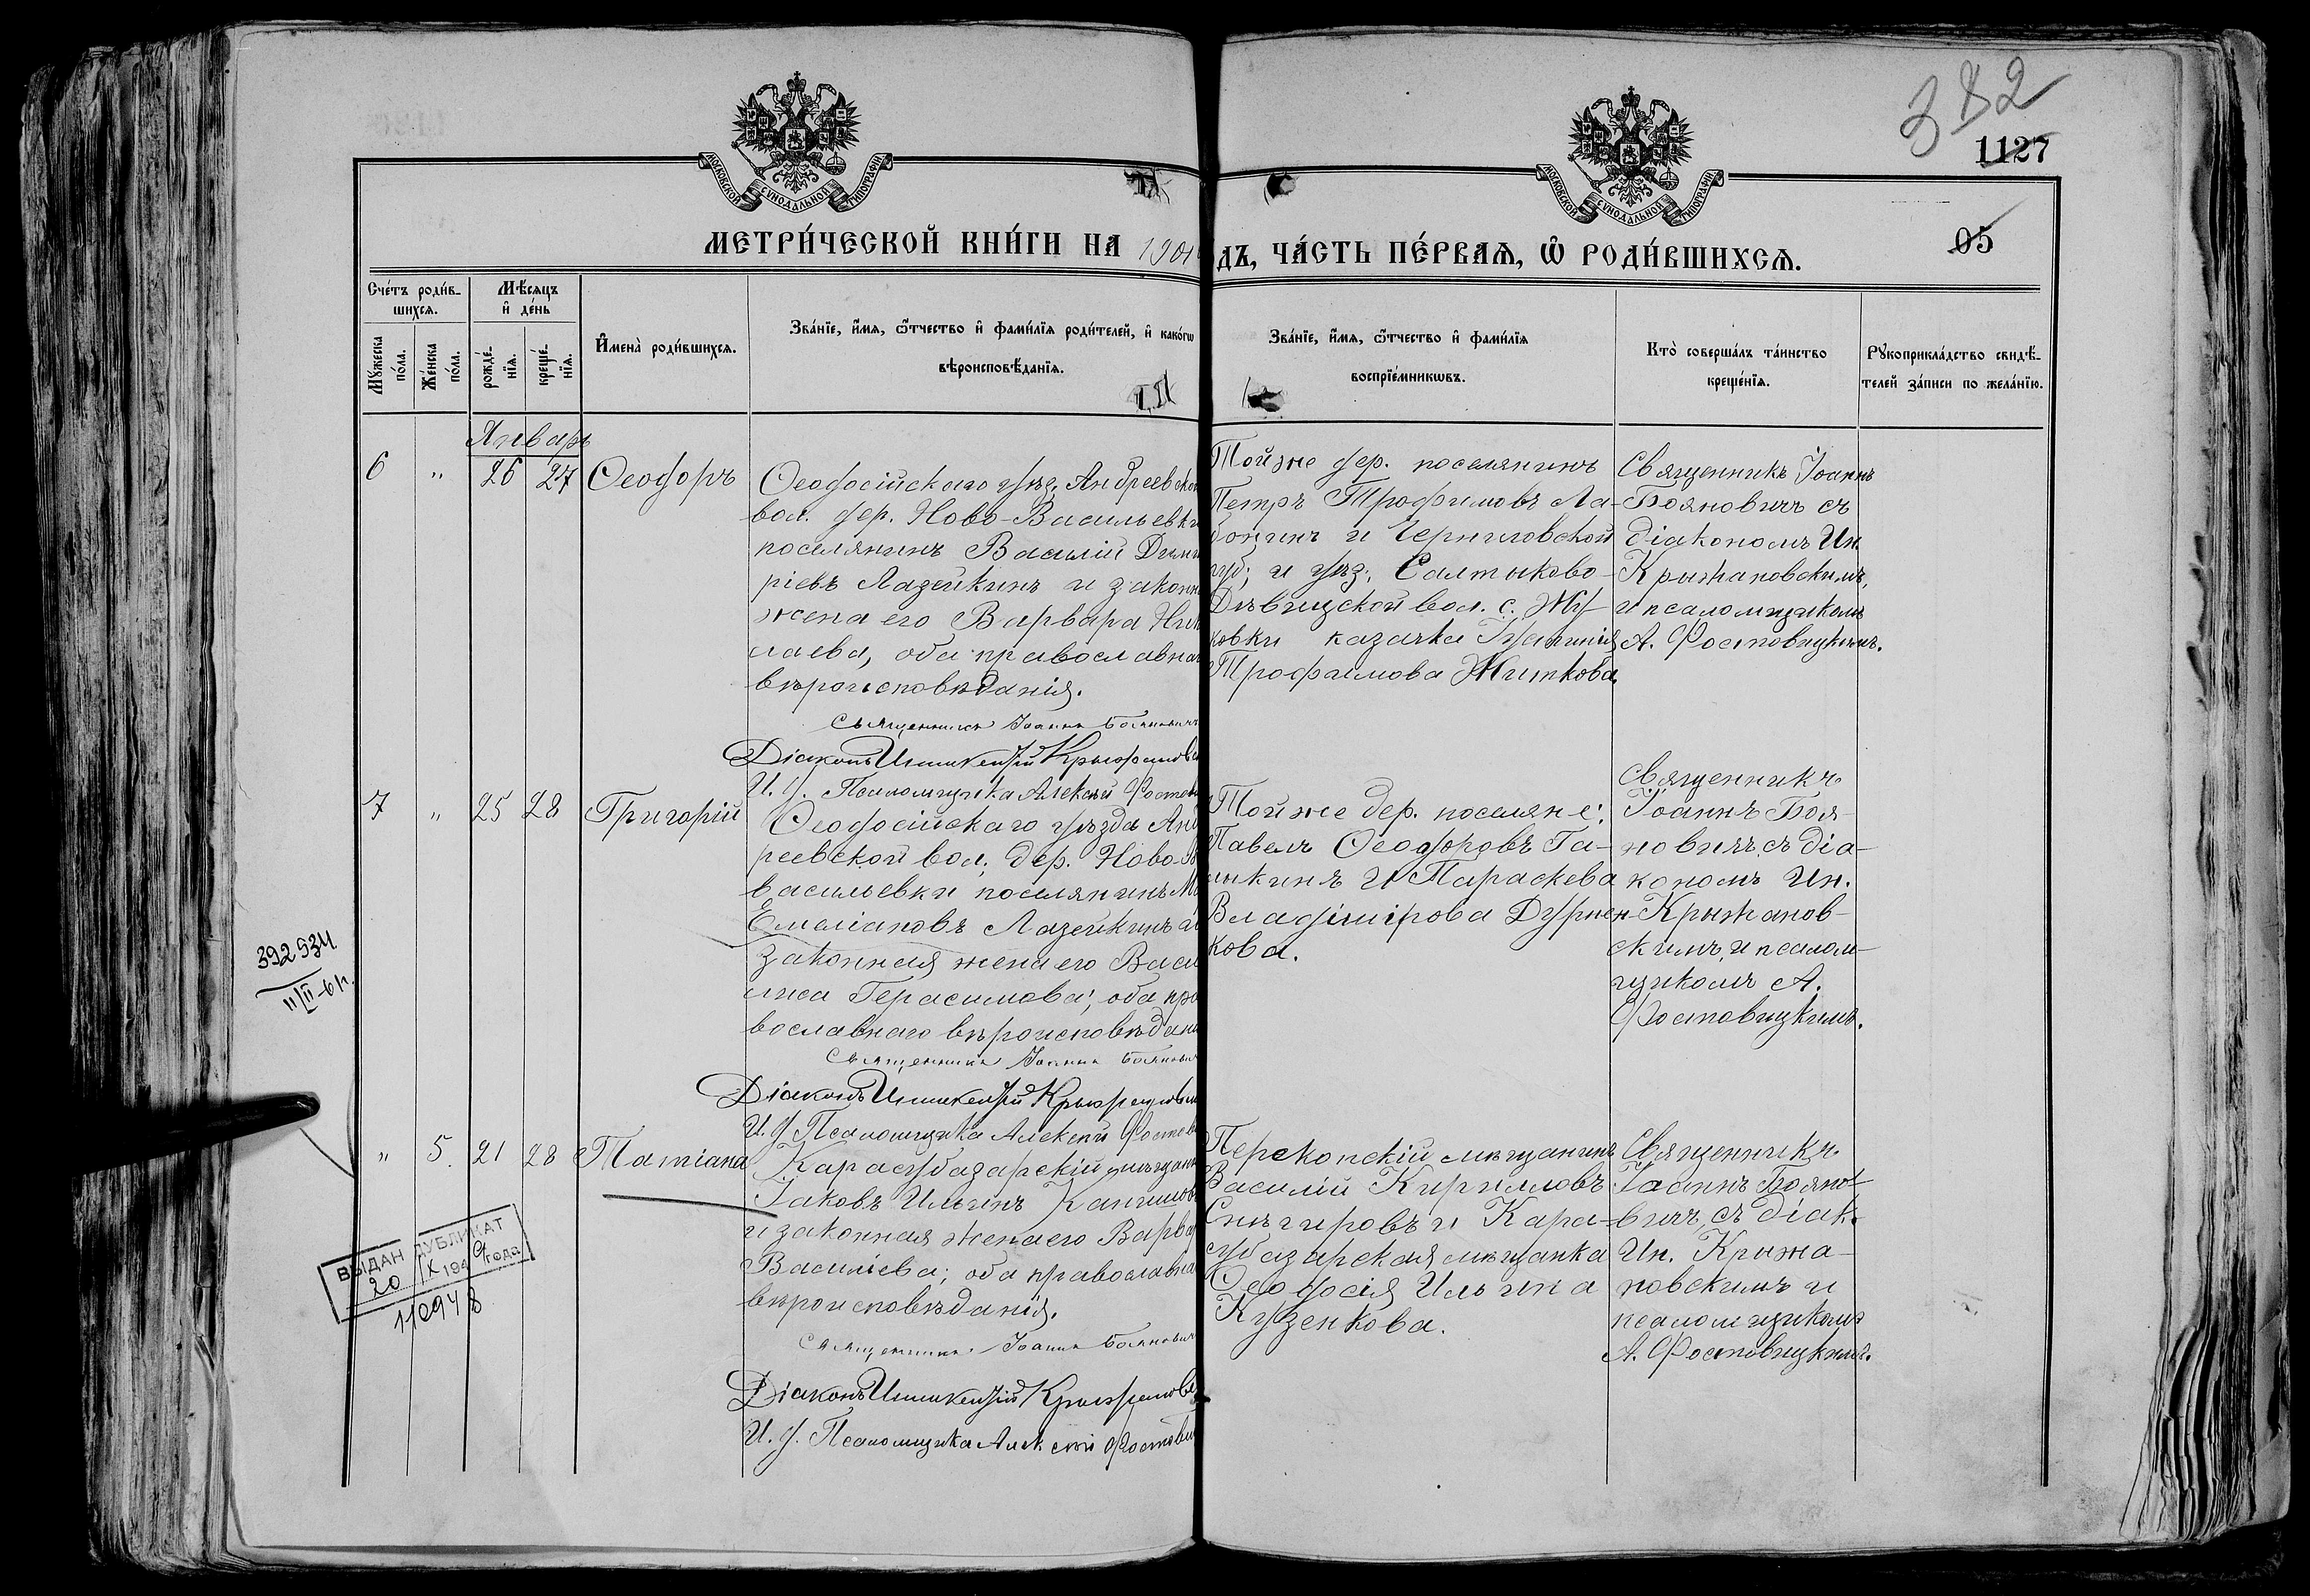 382
1127
05
МОСКОВСКОЙ СѴНОДАЛЬНОЙ ТИПОГРАФІИ
МОСКОВСКОЙ СѴНОДАЛЬНОЙ ТИПОГРАФІИ
МЕТРИ́ЧЕСКОЙ КНИ́ГИ НА 1901
ДЪ, ЧА́СТЬ ПЕ́РВАѦ, Ѡ РОДИ́ВШИХСѦ.
Сче́тъ роди́в-
шихсѧ.
Мѣ́сѧцъ
и҆ де́нь
Мꙋ́жеска
по́ла.
Же́нска
по́ла.
рожде́-
нїѧ.
креще́-
нїѧ.
И҆мена̀ роди́вшихсѧ.
Зва́нїе, и҆́мѧ, ѻ҆́тчество и҆ фами́лїѧ роди́телей, и҆ како́гѡ
вѣроисповѣ́данїѧ.
Зва́нїе, и҆́мѧ, ѻ҆́тчество и҆ фами́лїѧ
воспрїе́мникѡвъ.
Кто̀ соверша́лъ та́инство
креще́нїѧ.
Рꙋкоприкла́дство свидѣ́-
телей за́писи по жела́нїю.
Январь
6 " 26 27 Ѳеодоръ
Ѳеодосійскаго уѣз. Андреевской
вол. дер. Ново-Васильевки
поселянинъ Василій Дими
ріевъ Лазейкинъ и законн
жена его Варвара Ник
лаева, оба православна
вѣроисповѣданія.
Священникъ Іоаннъ Бояновичъ
Діаконъ Иннокентій Крыжановс
И. д. Псаломщика Алексѣй Фостов
Той же дер. поселянинъ
Петръ Трофимовъ Ла-
и Черниговской
губ; и уѣз; Салтыково-
Дѣвицской вол. с. Жу
ковки казачка
Трофимова Житкова
Священникъ Іоаннъ
Бояновичъ съ
діакономъ Ин.
Крыжановскимъ,
и псаломщикомъ
А. Фостовицкимъ.
7 " 25 28 Григорій
Ѳеодосійскаго уѣзда Анд
реевской вол; дер. Ново-
васильевки поселянинъ
Емеліановъ Лазейкинъ и
законная жена его Васи
лиса Герасимова; оба пра
вославнаго вѣроисповѣдані
Священникъ Іоаннъ Бояновичъ
Діаконъ Иннокентій Крыжановск
И. д. Псаломщика Алексѣй Фостов
Той же дер. поселяне:
Павелъ Ѳеодоровъ Га-
лыкинъ и Параскева
Владімірова Дурнен-
кова.
Священникъ
Іоаннъ Боя-
новичъ съ діа-
кономъ Ин.
Крыжанов-
скимъ, и псалом-
щикомъ А.
Фостовицкимъ.
392534
11/II-61г.
" 5. 21 28 Татіана
Карасубазарскій мѣщани
Іаковъ Ильинъ
и законная жена его Варва
Василіева; оба православна
вѣроисповѣданія.
Священникъ Іоаннъ Бояновичъ
Діаконъ Иннокентій Крыжановс
И. д. Псаломщика Алексѣй Фостови
Перекопскій мѣщанинъ
Василій Кирилловъ
Снѣгировъ и Кара-
субазарская мѣщанка
Ѳеодосія Ильина
Кузенкова.
Священникъ
Іоаннъ Бояно-
вичъ, съ діак.
Ин. Крыжа-
новскимъ и
псаломщикомъ
А. Фостовицкимъ.
ВЫДАН ДУБЛИКАТ
20 / IX 1949 года
110948